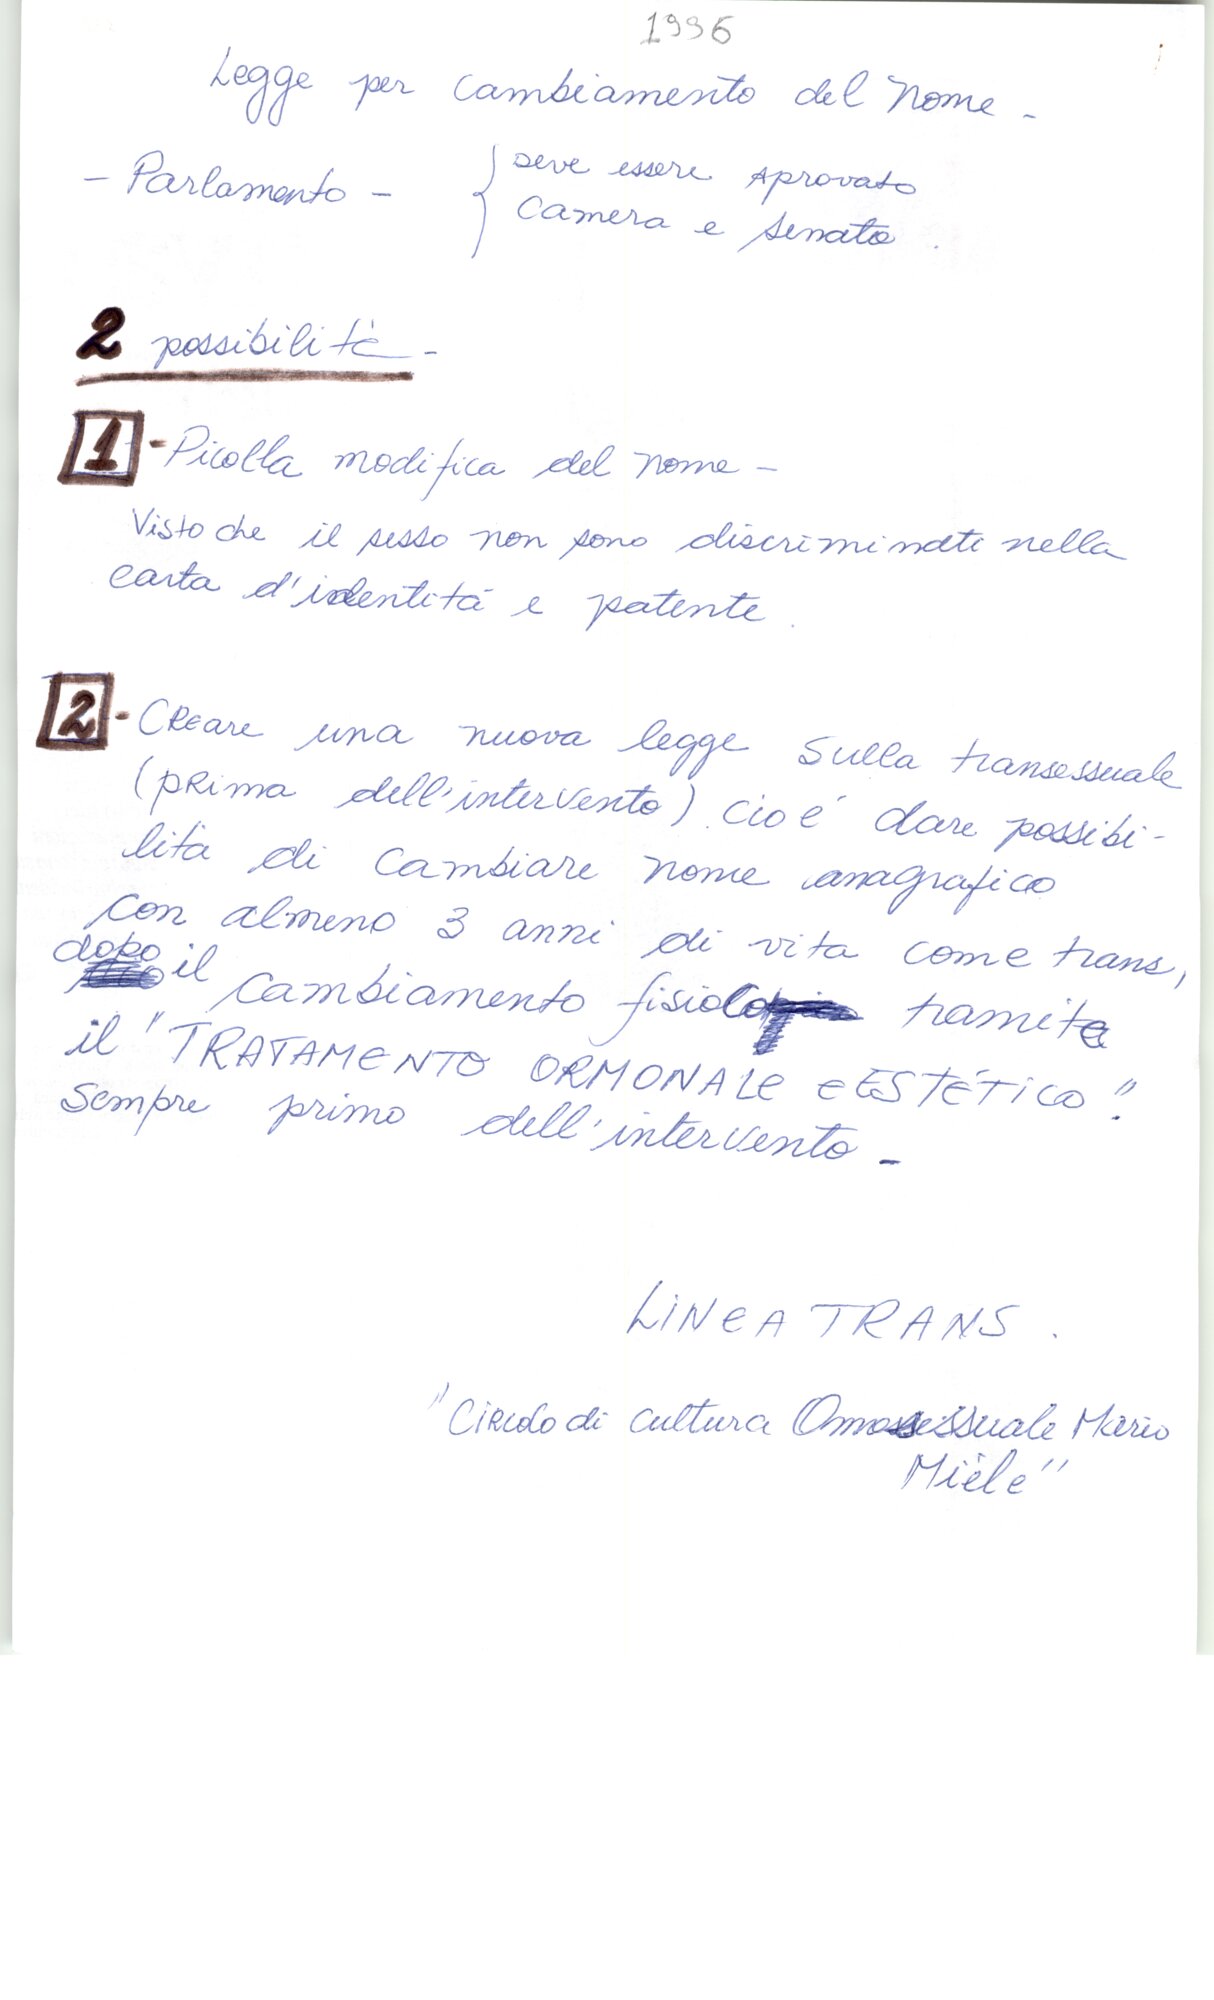 1996
Legge per cambiamento del nome -
- Parlamento - { deve essere aprovato
Camera e Senato
2 possibilità -
1 - Picolla modifica del nome -
Visto che il sesso non sono discriminati nella
carta d'identità e patente.
2 - Creare una nuova legge sulla transessuale
(prima dell'intervento) cio é dare possibi-
lità di cambiare nome anagrafico
con almeno 3 anni di vita come trans,
dopo il cambiamento fisico tramite
il "TRATAMENTO ORMONALE e ESTÉTICO".
Sempre primo dell'intervento -
LINEA TRANS.
"Circolo di cultura Omosessuale Mario
Miele"